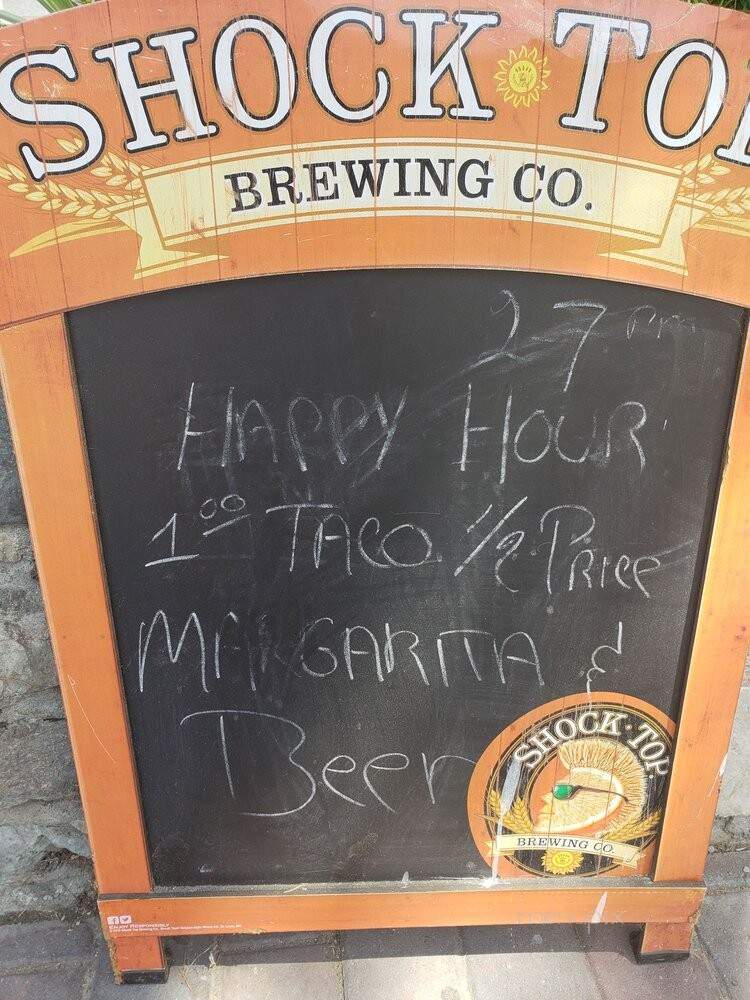 SHOCK TOP
BREWING CO.
27 PM
HAPPY HOUR
1 00 TACO 1/2 PRICE
MARGARITA &
Beer
SHOCK TOP
BREWING CO.
ENJOY RESPONSIBLY